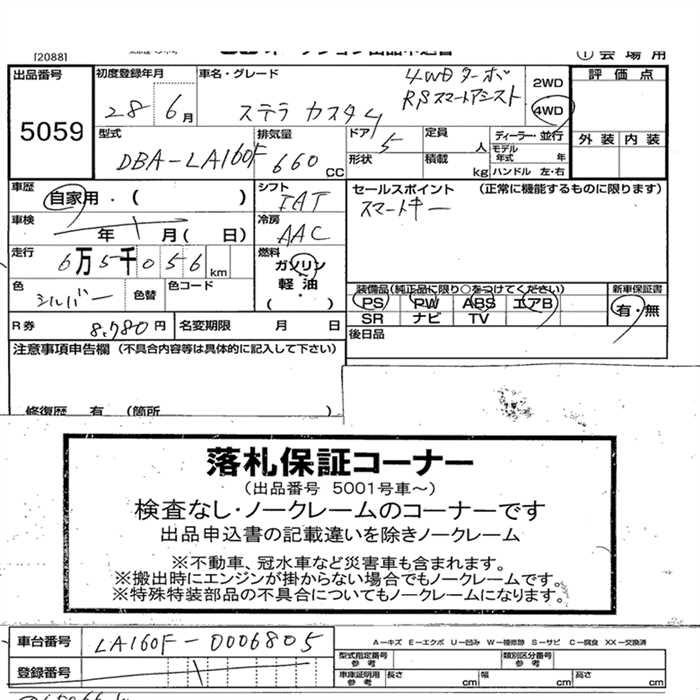 [2088]
オークション出品申込書
① 会場用
出品番号 5059
初度登録年月 28 6月
車名・グレード ステラ カスタム 4WDターボ RSスマートアシスト
2WD
4WD
評価点
外装 内装
型式 DBA-LA160F
排気量 660 CC
ドア 5
形状
定員 人
積載 kg
ディーラー・並行
モデル年式 年
ハンドル 左・右
車歴 自家用・( )
シフト IAT
セールスポイント (正常に機能するものに限ります)
スマートキー
車検 年 月(日)
冷房 AAC
走行 6万5千056km
燃料 ガソリン
軽油
( )
色 シルバー
色替
色コード
装備品(純正品に限り○をつけてください)
PS PW ABS エアB
SR ナビ TV
新車保証書
有・無
R券 8,780円
名変期限 月 日
後日品
注意事項申告欄 (不具合内容等は具体的に記入して下さい)
修復歴 有 (箇所
落札保証コーナー
(出品番号 5001号車~)
検査なし・ノークレームのコーナーです
出品申込書の記載違いを除きノークレーム
※不動車、冠水車など災害車も含まれます。
※搬出時にエンジンが掛からない場合でもノークレームです。
※特殊特装部品の不具合についてもノークレームになります。
車台番号 LA160F-0006805
A-キズ E-エクボ U-凹み W-補修跡 S-サビ C-腐食 XX-交換済
登録番号
型式指定番号 参考
類別区分番号 参考
車庫証明用 参考 長さ cm 幅 cm 高さ cm